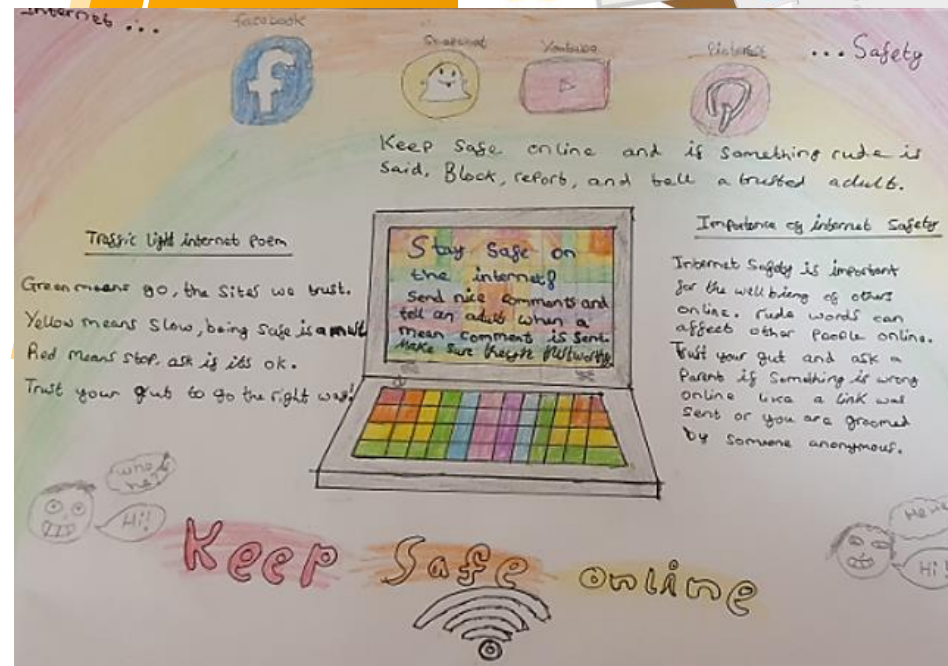 Internet ...
... Safety
facebook
Snapchat
Youtube
Pinterest
Keep Safe online and if something rude is
said, Block, report, and tell a trusted adult.
Traffic light internet Poem
Green means go, the Sites we trust.
Yellow means Slow, being Safe is a must
Red means Stop, ask if its ok.
Trust your gut to go the right way!
Stay Safe on
the internet!
Send nice comments and
tell an adult when a
mean comment is sent.
Make Sure
Importance of internet Safety
Internet Safety is important
for the wellbieng of others
online. rude words can
affect other People online.
Trust your gut and ask a
Parent if Something is wrong
online like a link was
Sent or you are groomed
by someone anonymous.
who is
he?
Hi!!
Hehe
Hi!
Keep Safe online